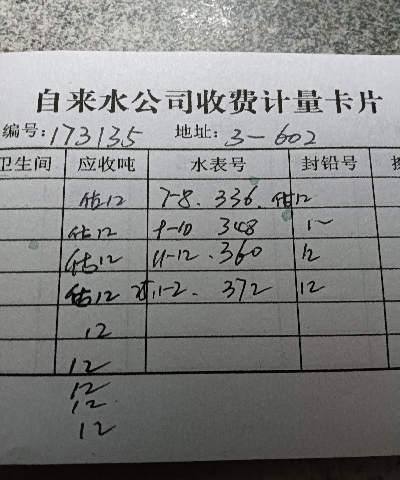 自来水公司收费计量卡片
编号: 173135 地址: 3-602
卫生间 应收吨 水表号 封铅号
估12 7-8. 336. 估12
估12 9-10 348 1~
估12 11-12. 360 12
估12 1-2. 372 12
12
12
12
12
12